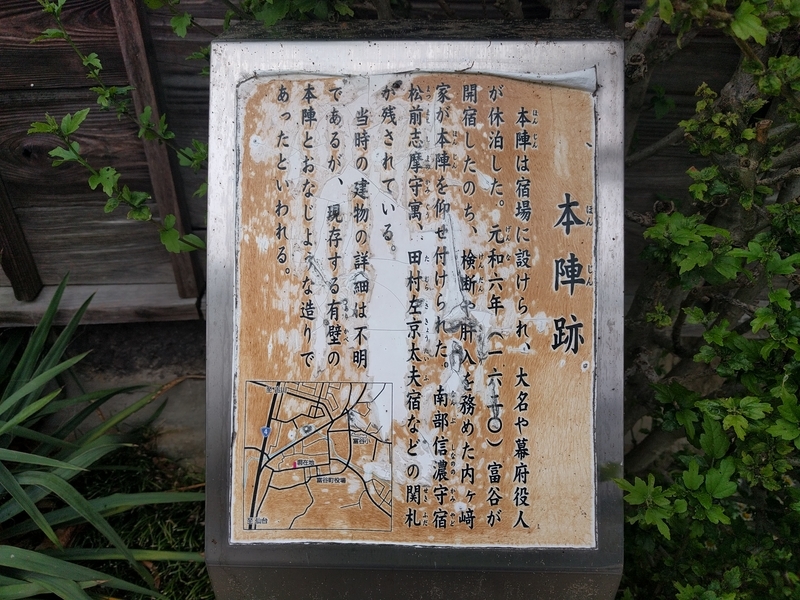 本陣跡
本陣は宿場に設けられ、大名や幕府役人
が休泊した。元和六年（一六二〇）富谷が
開宿したのち、検断や肝入を務めた内ヶ崎
家が本陣を仰せ付けられた。南部信濃守宿
松前志摩守寓、田村左京太夫宿などの関札
が残されている。
当時の建物の詳細は不明
であるが、現存する有壁の
本陣とおなじような造りで
あったといわれる。
富谷小
現在地
富谷町役場
至仙台